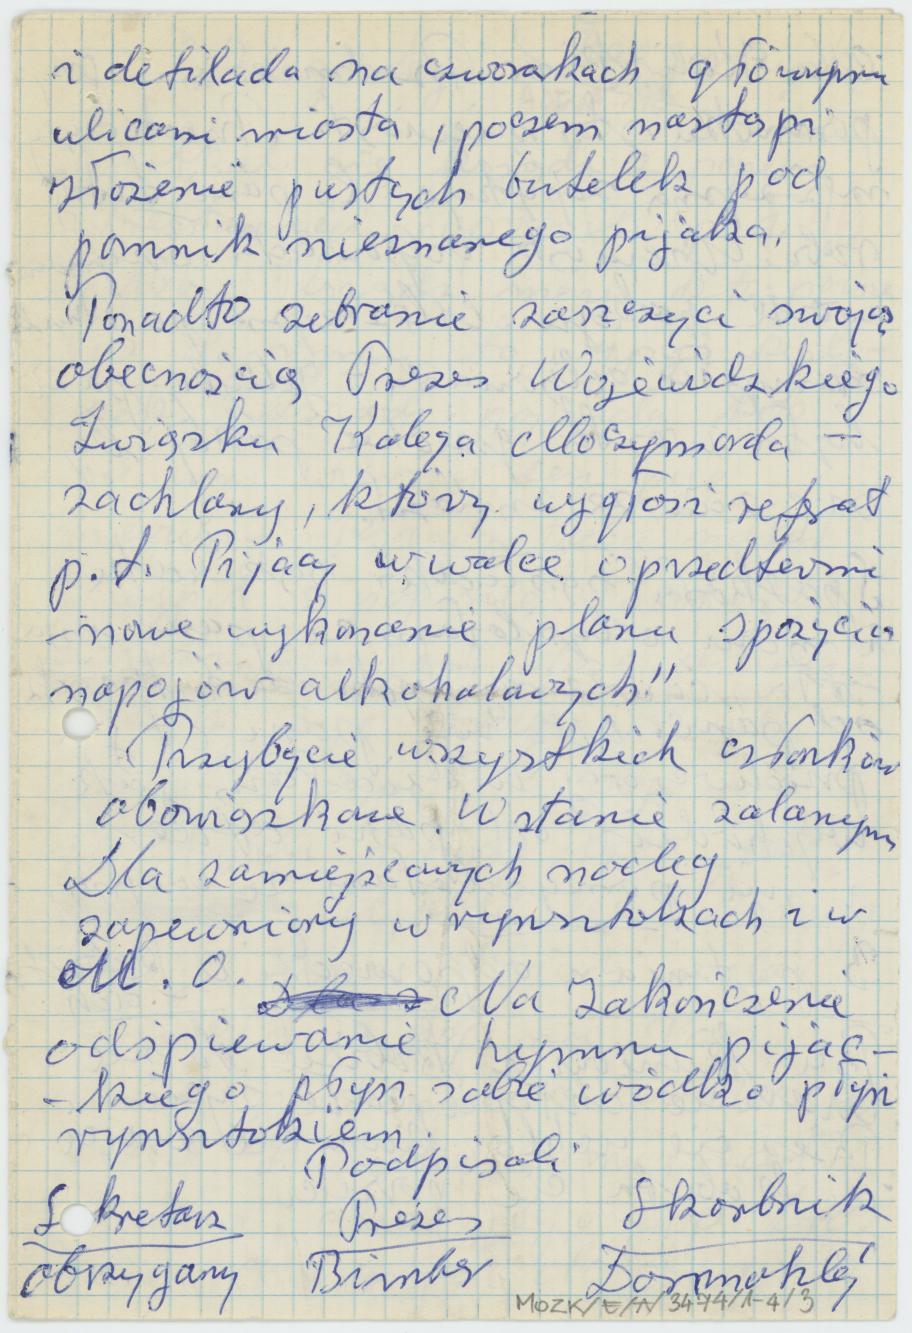 i defilada na czworakach głównymi
ulicami miasta, poczem nastąpi
złożenie pustych butelek pod
pomnik nieznanego pijaka.
Ponadto zebranie zaszczyci swoją
obecnością Prezes Wojewódzkiego
Związku Kolega Moczymorda –
zachlany, który wygłosi referat
p.t. Pijacy w walce o przedtermi
-nowe wykonanie planu spożycia
napojów alkoholowych!"
Przybycie wszystkich członków
obowiązkowe. W stanie zalanym
Dla zamiejscowych nocleg
zapewniony w rynsztokach i w
M.O.
Na zakończenie
odśpiewanie hymnu pijac-
-kiego płyń sobie wódko płyń
rynsztokiem.
Podpisali
Sekretarz Prezes Skarbnik
obrzygany Bimber Dormohlej
MOZK/E/A/3474/1-4/3